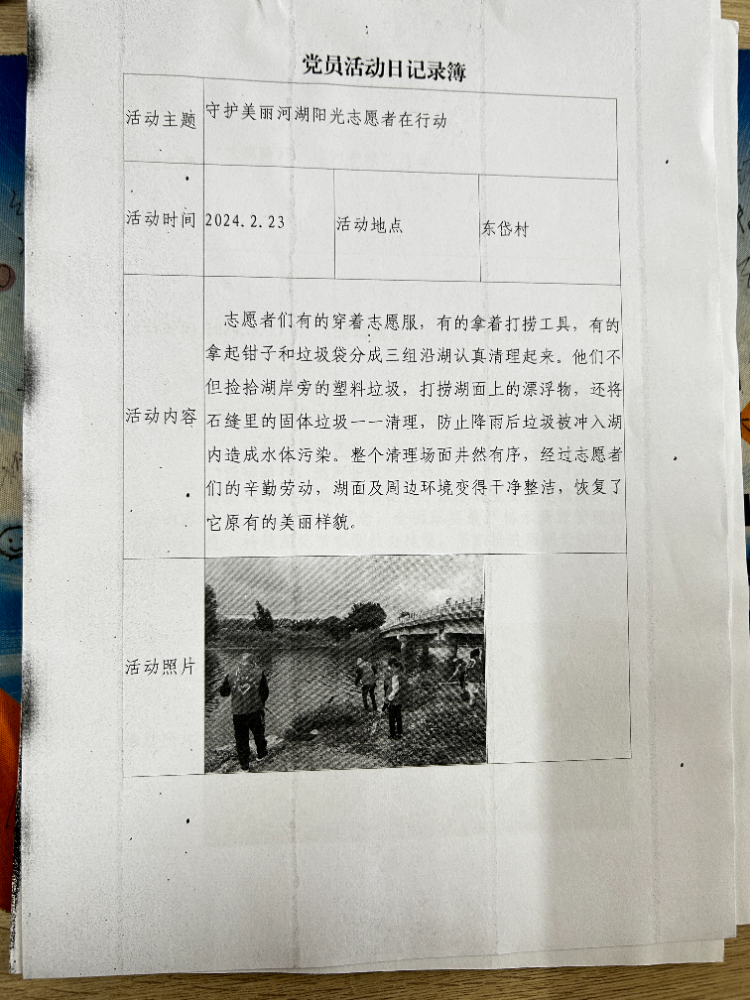 党员活动日记录簿
活动主题 守护美丽河湖阳光志愿者在行动
活动时间 2024.2.23 活动地点 东岱村
活动内容
志愿者们有的穿着志愿服，有的拿着打捞工具，有的
拿起钳子和垃圾袋分成三组沿湖认真清理起来。他们不
但捡拾湖岸旁的塑料垃圾，打捞湖面上的漂浮物，还将
石缝里的固体垃圾一一清理，防止降雨后垃圾被冲入湖
内造成水体污染。整个清理场面井然有序，经过志愿者
们的辛勤劳动，湖面及周边环境变得干净整洁，恢复了
它原有的美丽样貌。
活动照片